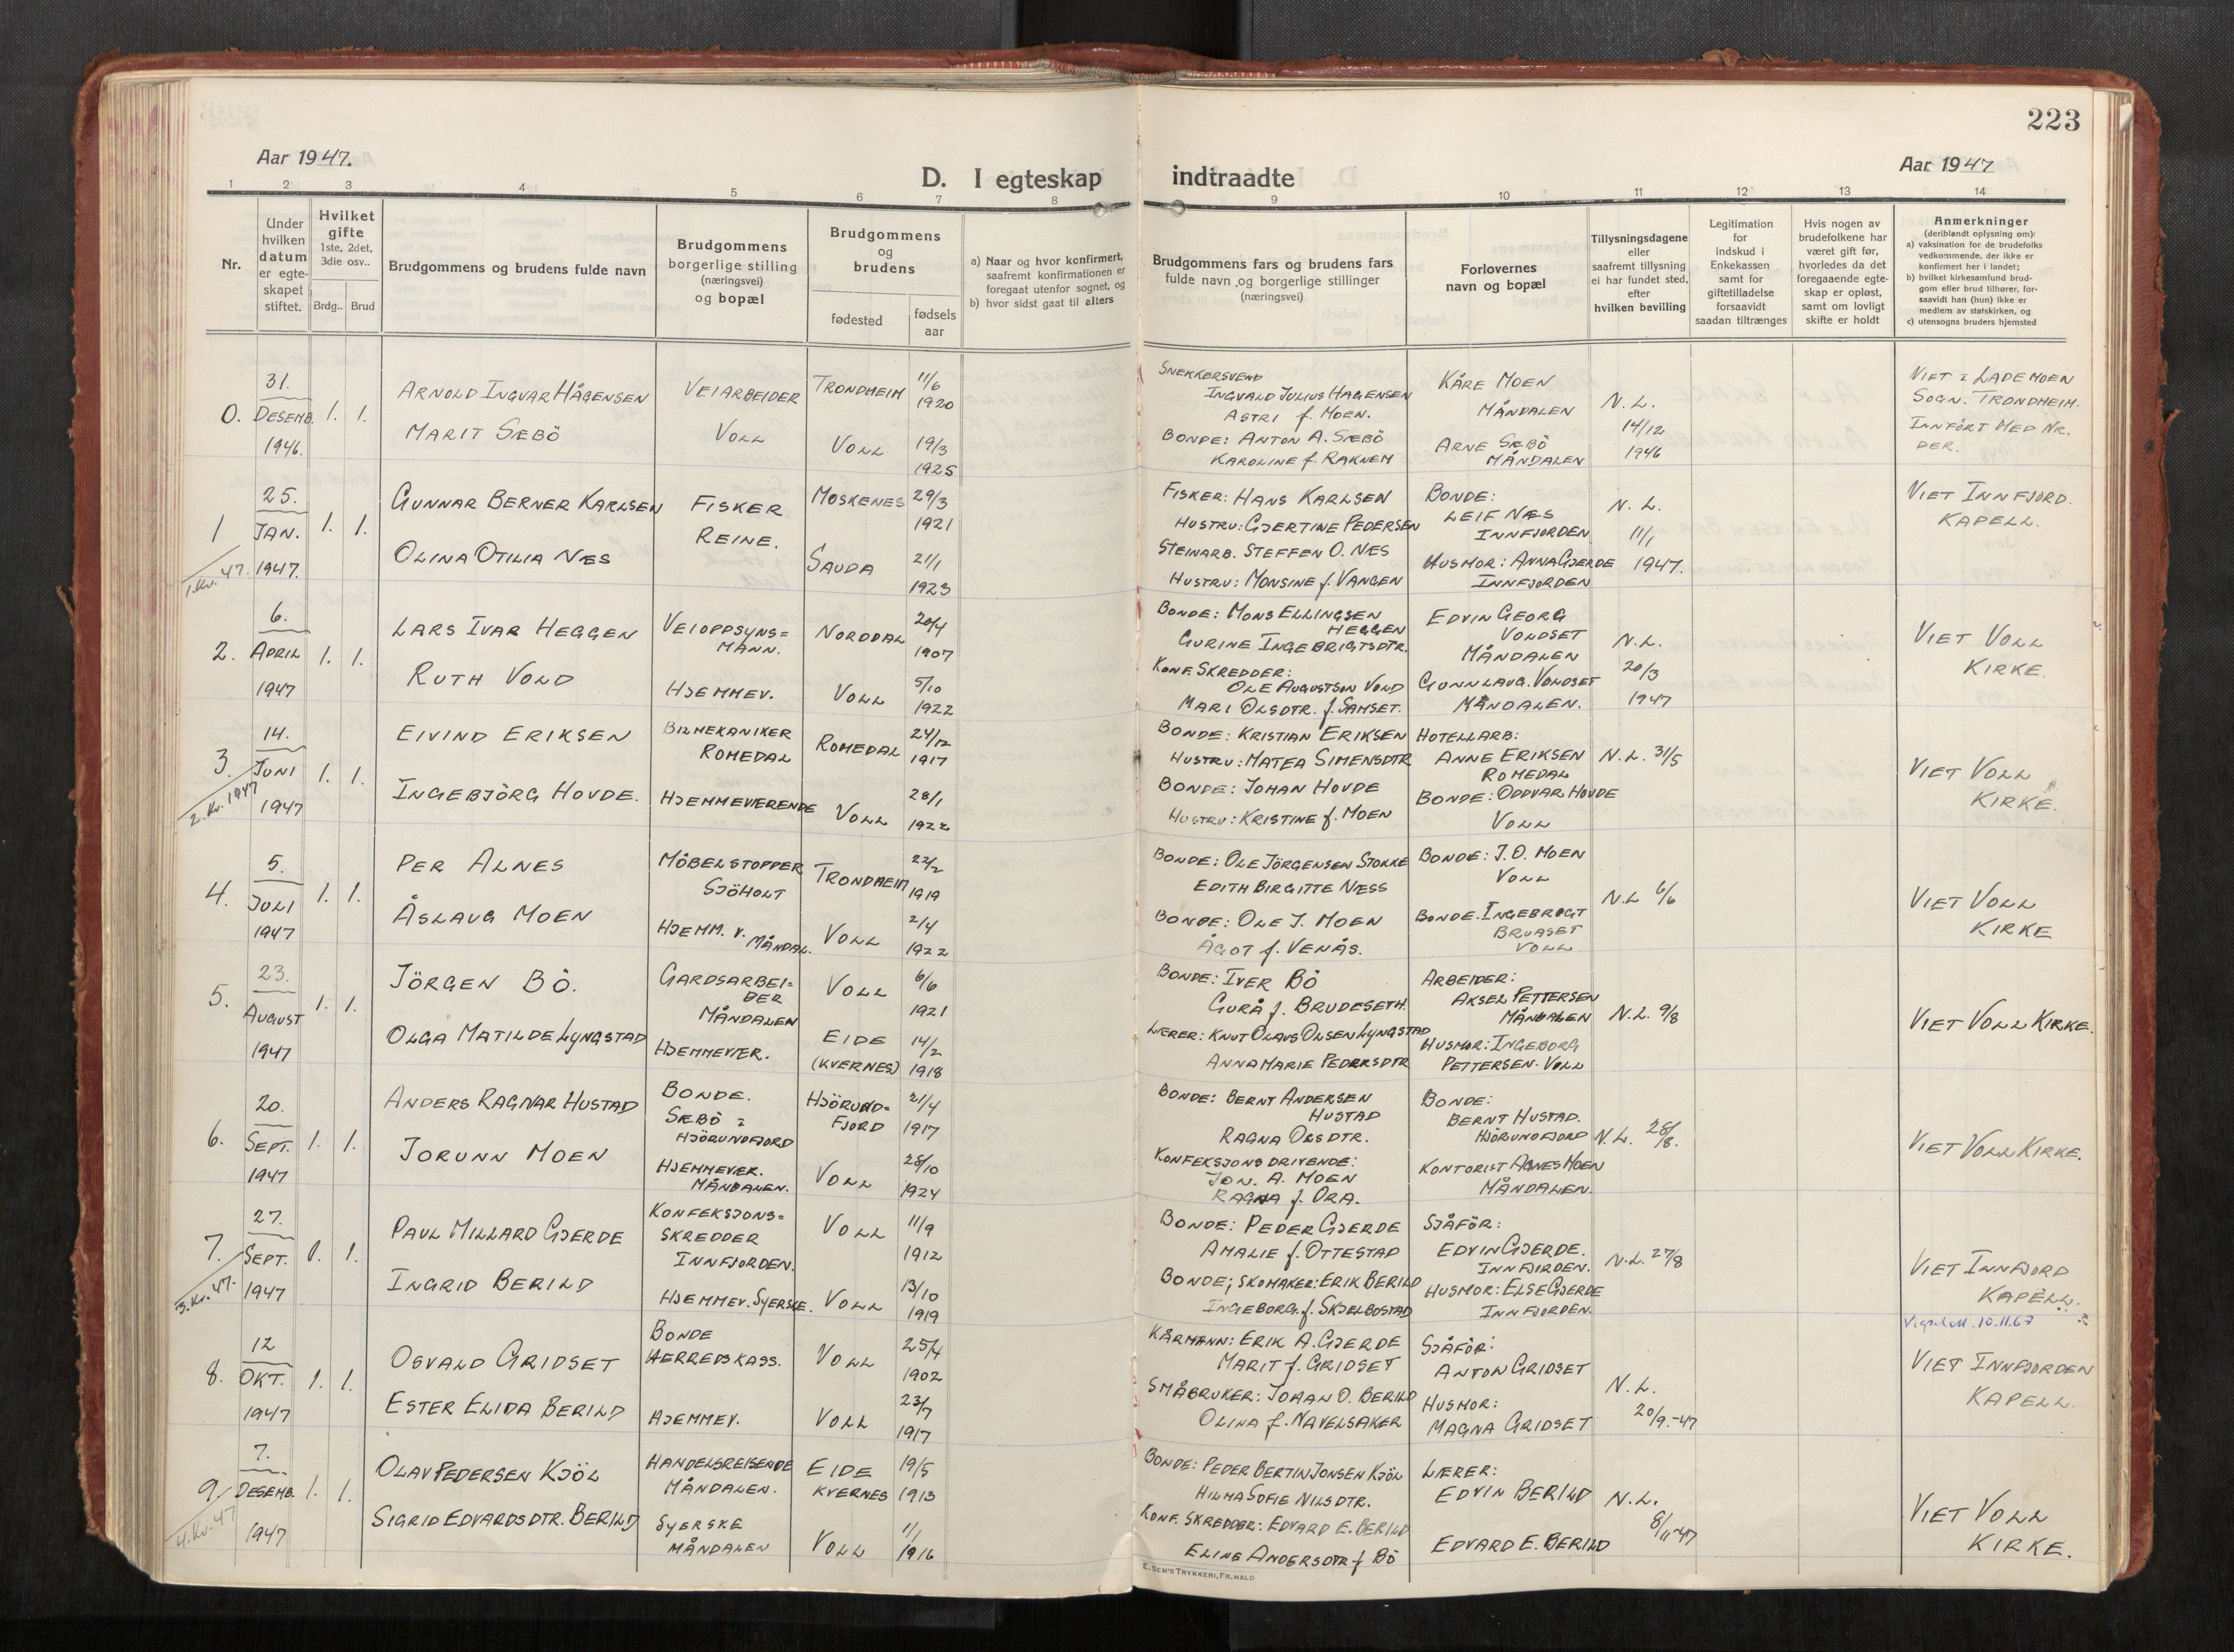 223
Aar 1947.
Aar 1947
D. I egteskap indtraadte
1 2 3 4 5 6 7 8 9 10 11 12 13 14
Nr.
Under hvilken datum er egte- skapet stiftet.
Hvilket gifte 1ste, 2det, 3die osv..
Brdg.. Brud
Brudgommens og brudens fulde navn
Brudgommens borgerlige stilling (næringsvei) og bopæl
Brudgommens og brudens
fødested
fødsels aar
a) Naar og hvor konfirmert, saafremt konfirmationen er foregaat utenfor sognet, og
b) hvor sidst gaat til alters
Brudgommens fars og brudens fars fulde navn og borgerlige stillinger (næringsvei)
Forlovernes navn og bopæl
Tillysningsdagene eller saafremt tillysning ei har fundet sted, efter hvilken bevilling
Legitimation for indskud i Enkekassen samt for giftetilladelse forsaavidt saadan tiltrænges
Hvis nogen av brudefolkene har været gift før, hvorledes da det foregaaende egte- skap er opløst, samt om lovligt skifte er holdt
Anmerkninger (deriblandt oplysning om):
a) vaksination for de brudefolks vedkommende, der ikke er konfirmert her i landet;
b) hvilket kirkesamfund brud- gom eller brud tilhører, for- saavidt han (hun) ikke er medlem av statskirken, og
c) utensogns bruders hjemsted
0. 31. Desemb. 1946. 1. 1.
Arnold Ingvar Hågensen
Marit Sæbö
Veiarbeider
Voll
Trondheim 11/6 1920
Voll 19/3 1925
Snekkersvend
Ingvald Julius Hagensen
Astri f. Moen.
Bonde: Anton A. Sæbö
Karoline f. Raknem
Kåre Moen
Måndalen
Arne Sæbö
Måndalen
N.L.
14/12
1946
Viet i Lademoen
Sogn. Trondheim.
Innfört med Nr.
der.
1 25. Jan. 1947. 1. 1.
1. Kv. 47.
Gunnar Berner Karlsen
Olina Otilia Næs
Fisker
Reine.
Moskenes 29/3 1921
Sauda 21/1 1923
Fisker: Hans Karlsen
Hustru: Gjertine Pedersen
Steinarb. Steffen O. Næs
Hustru: Monsine f. Vangen
Bonde:
Leif Næs
Innfjorden
Husmor: Anna Gjerde
Innfjorden
N.L.
11/1
1947.
Viet Innfjord.
Kapell.
2. 6. April 1947 1. 1.
Lars Ivar Heggen
Ruth Vold
Veioppsyns=
mann.
Hjemmev.
Norddal 20/4 1907
Voll 5/10 1922
Bonde: Mons Ellingsen
Heggen
Gurine Ingebrigtsdtr.
Konf. Skredder:
Ole Augustson Vold
Mari Olsdtr. f. Samset.
Edvin Georg
Voldset
Måndalen
Gunnlaug. Voldset
Måndalen.
N.L.
20/3
1947
Viet Voll
Kirke.
3. 14. Juni 1947 1. 1.
2. Kv. 1947
Eivind Eriksen
Ingebjörg Hovde.
Bilmekaniker
Romedal
Hjemmeværende
Romedal 24/12 1917
Voll 28/1 1922
Bonde: Kristian Eriksen
Hustru: Matea Simensdtr
Bonde: Johan Hovde
Hustru: Kristine f. Moen
Hotellarb:
Anne Eriksen
Romedal
Bonde: Oddvar Hovde
Voll
N.L. 31/5
Viet Voll
Kirke.
4. 5. Juli 1947 1. 1.
Per Alnes
Åslaug Moen
Möbelstopper
Sjöholt
Hjemm. v. Måndal.
Trondheim 22/2 1919
Voll 2/4 1922
Bonde: Ole Jörgensen Stokke
Edith Birgitte Næss
Bonde: Ole J. Moen
Ågot f. Venås.
Bonde: J.O. Moen
Voll
Bonde. Ingebrogt
Bruaset
Voll
N.L 6/6
Viet Voll
Kirke
5. 23. August 1947 1. 1.
Jörgen Bö.
Olga Matilde Lyngstad
Gardsarbei=
der
Måndalen
Hjemmevær.
Voll 6/6 1921
Eide (Kvernes) 14/2 1918
Bonde: Iver Bö
Gurå f. Brudeseth.
Lærer: Knut Olaus Olsen Lyngstad
Anna Marie Pedersdtr
Arbeider:
Aksel Pettersen
Måndalen
Husmor: Ingeborg
Pettersen. Voll
N.L. 9/8
Viet Voll Kirke.
6. 20. Sept. 1947 1. 1.
Anders Ragnar Hustad
Jorunn Moen
Bonde.
Sæbö i
Hjörundfjord
Hjemmevær.
Måndalen.
Hjörund=
fjord 21/4 1917
Voll 28/10 1924
Bonde: Bernt Andersen
Hustad
Ragna Olsdtr.
Konfeksjonsdrivende:
Jon. A. Moen
Ragna f. Ora.
Bonde:
Bernt Hustad.
Hjörundfjord
Kontorist Agnes Moen
Måndalen.
N.L. 28/8.
Viet Voll Kirke.
7. 27. Sept. 1947 1. 1.
3. Kv. 47.
Paul Millard Gjerde
Ingrid Berild
Konfeksjons=
skredder
Innfjorden.
Hjemmev. Syerske.
Voll 11/9 1912
Voll 13/10 1919
Bonde: Peder Gjerde
Amalie f. Ottestad
Bonde; Skomaker: Erik Berild
Ingeborg. f. Skjelbostad
Sjåför:
Edvin Gjerde.
Innfjorden.
Husmor: Else Gjerde
Innfjorden.
N.L. 27/8
Viet Innfjord
Kapell.
10.11.67
8. 12 Okt. 1947 1. 1.
Osvald Gridset
Ester Elida Berild
Bonde
Herredskass.
Hjemmev.
Voll 25/4 1902
Voll 23/7 1917
Kårmann: Erik A. Gjerde
Marit f. Gridset
Småbruker: Johan O. Berild
Olina f. Navelsaker
Sjåför:
Anton Gridset
Husmor:
Magna Gridset
N.L.
20/9.-47
Viet Innfjorden
Kapell.
9. 7. Desemb. 1947 1. 1.
4. Kv. 47
Olav Pedersen Kjöl
Sigrid Edvardsdtr. Berild
Handelsreisende
Måndalen.
Syerske
Måndalen
Eide
Kvernes 19/5 1913
Voll 11/1 1916
Bonde: Peder Bertin Jonsen Kjöl
Hilma Sofie Nilsdtr.
Konf. Skredder: Edvard E. Berild
Eline Andersdtr f Bö
Lærer:
Edvin Berild
Edvard E. Berild
N.L.
8/11-47
Viet Voll
Kirke.
E. SEM'S TRYKKERI, FR.HALD